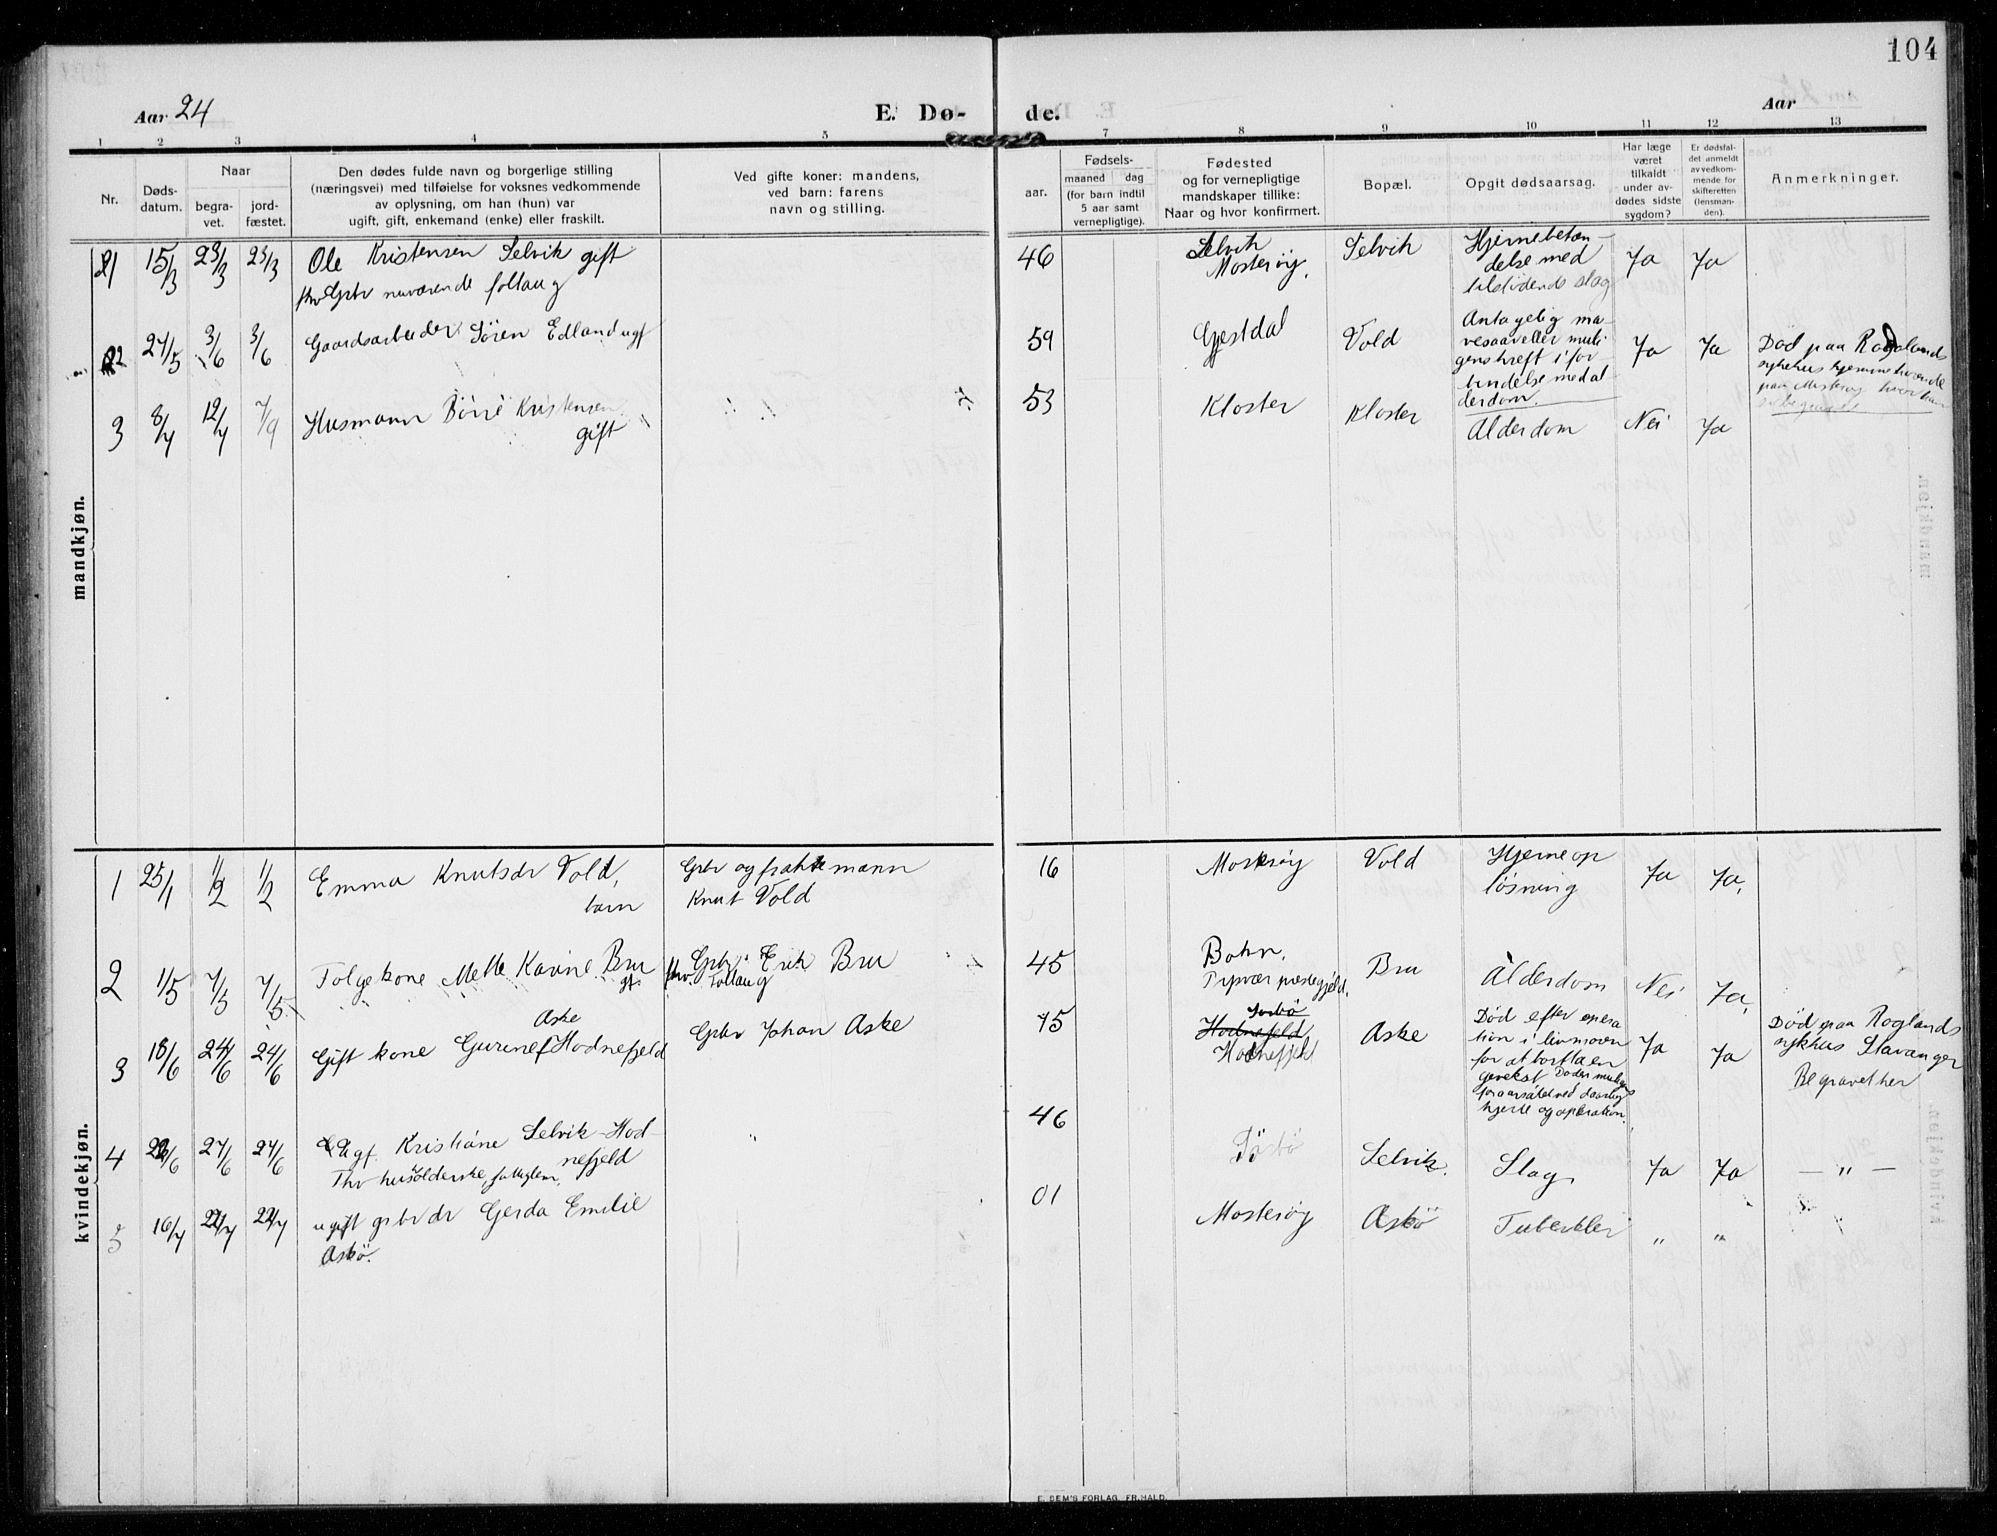 104
Aar 24
E. Dø-
de.
Aar
1 2 3 4 5 7 8 9 10 11 12 13
Nr.
Døds-
datum.
Naar
begra-
vet.
jord-
fæstet.
Den dødes fulde navn og borgerlige stilling
(næringsvei) med tilføielse for voksnes vedkommende
av oplysning, om han (hun) var
ugift, gift, enkemand (enke) eller fraskilt.
Ved gifte koner: mandens,
ved barn: farens
navn og stilling.
aar.
Fødsels-
maaned dag
(for barn indtil
5 aar samt
vernepligtige).
Fødested
og for vernepligtige
mandskaper tillike:
Naar og hvor konfirmert.
Bopæl.
Opgit dødsaarsag.
Har læge
været
tilkaldt
under av-
dødes sidste
sygdom?
Er dødsfal-
det anmeldt
av vedkom-
mende for
skifteretten
(lensman-
den).
Anmerkninger.
mandkjøn.
1 15/3 23/3 23/3 Ole Kristensen Selvik gift
fhv Gbr nuværende foltaug
46 Selvik
Mosterøy.
Selvik
Hjernebetæn-
delse med
tilstødende slag
Ja Ja
2 27/5 3/6 3/6 Gaardsarbeider Sören Edland ugf
59 Gjestdal Vold
Antagelig ma-
vesaar eller muli-
genskreft i for
bindelse med al
derdom.
Ja Ja
Död paa Rogalands
sykehus hjemmehørende
paa Mosterøy hvor han
3 8/7 12/7 7/9 Husmann Börre Kristensen
gift
53 Kloster Kloster Alderdom Nei Ja
kvindekjøn.
1 25/1 1/2 1/2 Emma Knutsdr Vold,
barn
Gbr og fraktemann
Knut Vold
16 Mosterøy Vold
Hjerneop
løsning
Ja Ja,
2 1/5 7/5 7/5 Folgekone Mette Karine Bru
gf.
Gbr Erik Bru
fhv. foltaug
45 Bokn.
Tysvær prestegjeld.
Bru Alderdom Nei Ja,
3 18/6 24/6 24/6 Gift kone Gurine f Hodnefjeld
Aske
Gbr Johan Aske
75
Hodnefjeld
Hodnefjeld
Aske
Død efter opera
tion i livmoren
for at bortta en
gevekst
hjerte og operation.
Ja Ja
Død paa Roglands
sykhus Stavanger
Begravet her
4 22/6 27/6 27/6 Ugf. Kristiane Selvik-Hod-
nefjeld
Fhv husholderske,
"
46 Selvik. Slag, Ja Ja — " —
5 16/7 22/7 22/7 ugift grbr dr Gerda Emilie
Askö.
01 Mosterøy Askö Tuberkler " "
E. DEM'S FORLAG, FR.HALD.